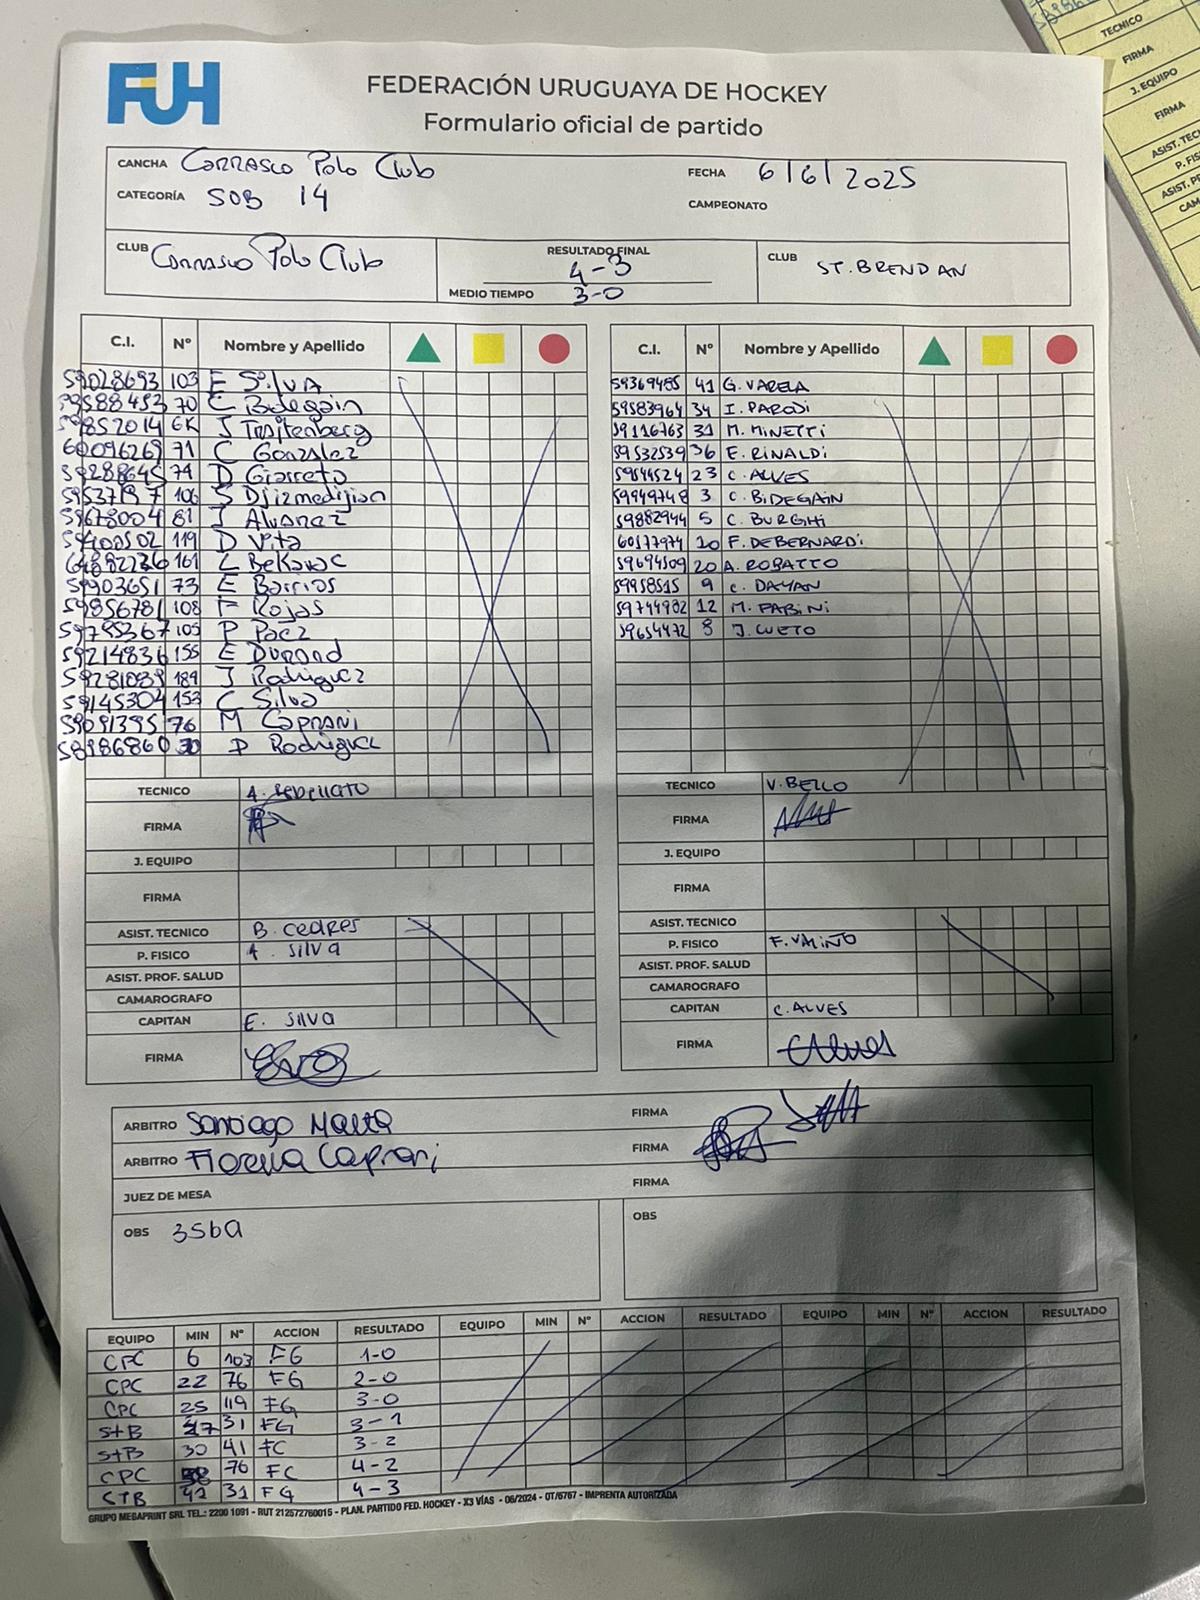 FUH
FEDERACIÓN URUGUAYA DE HOCKEY
Formulario oficial de partido
CANCHA Carrasco Polo Club FECHA 6/6/2025
CATEGORÍA SOB 14 CAMPEONATO
CLUB Carrasco Polo Club RESULTADO FINAL 4-3 CLUB ST. BRENDAN
MEDIO TIEMPO 3-0
C.I. Nº Nombre y Apellido
59028693 103 E Silva
59588453 70 C Bidegain
59852014 GK J Trajtenberg
60096269 71 C Gonzalez
59288645 74 D Giarreta
106 S Djizmedjian
59678004 81 J Alvarez
119 D Vita
64892236 161 L
59903651 73 E Barrios
59856781 108 F Rojas
59795367 105 P Paez
59214836 155 E Durand
59281039 189 J Rodriguez
59145304 153 C Silva
59091395 76 M Caprani
58986860 D Rodriguez
C.I. Nº Nombre y Apellido
59369485 41 G. VARELA
59583964 34 I. PARODI
59116763 31 M. MINETTI
59532539 36 E. RINALDI
59544524 23 C. ALVES
59949748 3 C. BIDEGAIN
59882944 5 C. BURGHI
60177974 10 F. DEBERNARDI
59694509 20 A. ROBATTO
59958515 9 C. DAYAN
59744902 12 M. FABINI
59654472 8 J. CUETO
TECNICO A. TECNICO V. BELLO
FIRMA FIRMA
J. EQUIPO J. EQUIPO
FIRMA FIRMA
ASIST. TECNICO B. Cedres ASIST. TECNICO
P. FISICO A. Silva P. FISICO F. VALIÑO
ASIST. PROF. SALUD ASIST. PROF. SALUD
CAMAROGRAFO CAMAROGRAFO
CAPITAN E. Silva CAPITAN C. ALVES
FIRMA FIRMA
ARBITRO Santiago FIRMA
ARBITRO Fiorella Caprani FIRMA
JUEZ DE MESA FIRMA
OBS OBS
EQUIPO MIN Nº ACCION RESULTADO EQUIPO MIN Nº ACCION RESULTADO EQUIPO MIN Nº ACCION RESULTADO
CPC 6 103 FG 1-0
CPC 22 76 FG 2-0
CPC 25 119 FG 3-0
StB 31 FG 3-1
StB 30 41 FC 3-2
CPC 76 FC 4-2
STB 42 31 FG 4-3
GRUPO MEGAPRINT SRL TEL.: 2200 1091 - RUT 212572760015 - PLAN. PARTIDO FED. HOCKEY - X3 VÍAS - 06/2024 - OT/6767 - IMPRENTA AUTORIZADA
TECNICO
FIRMA
J. EQUIPO
FIRMA